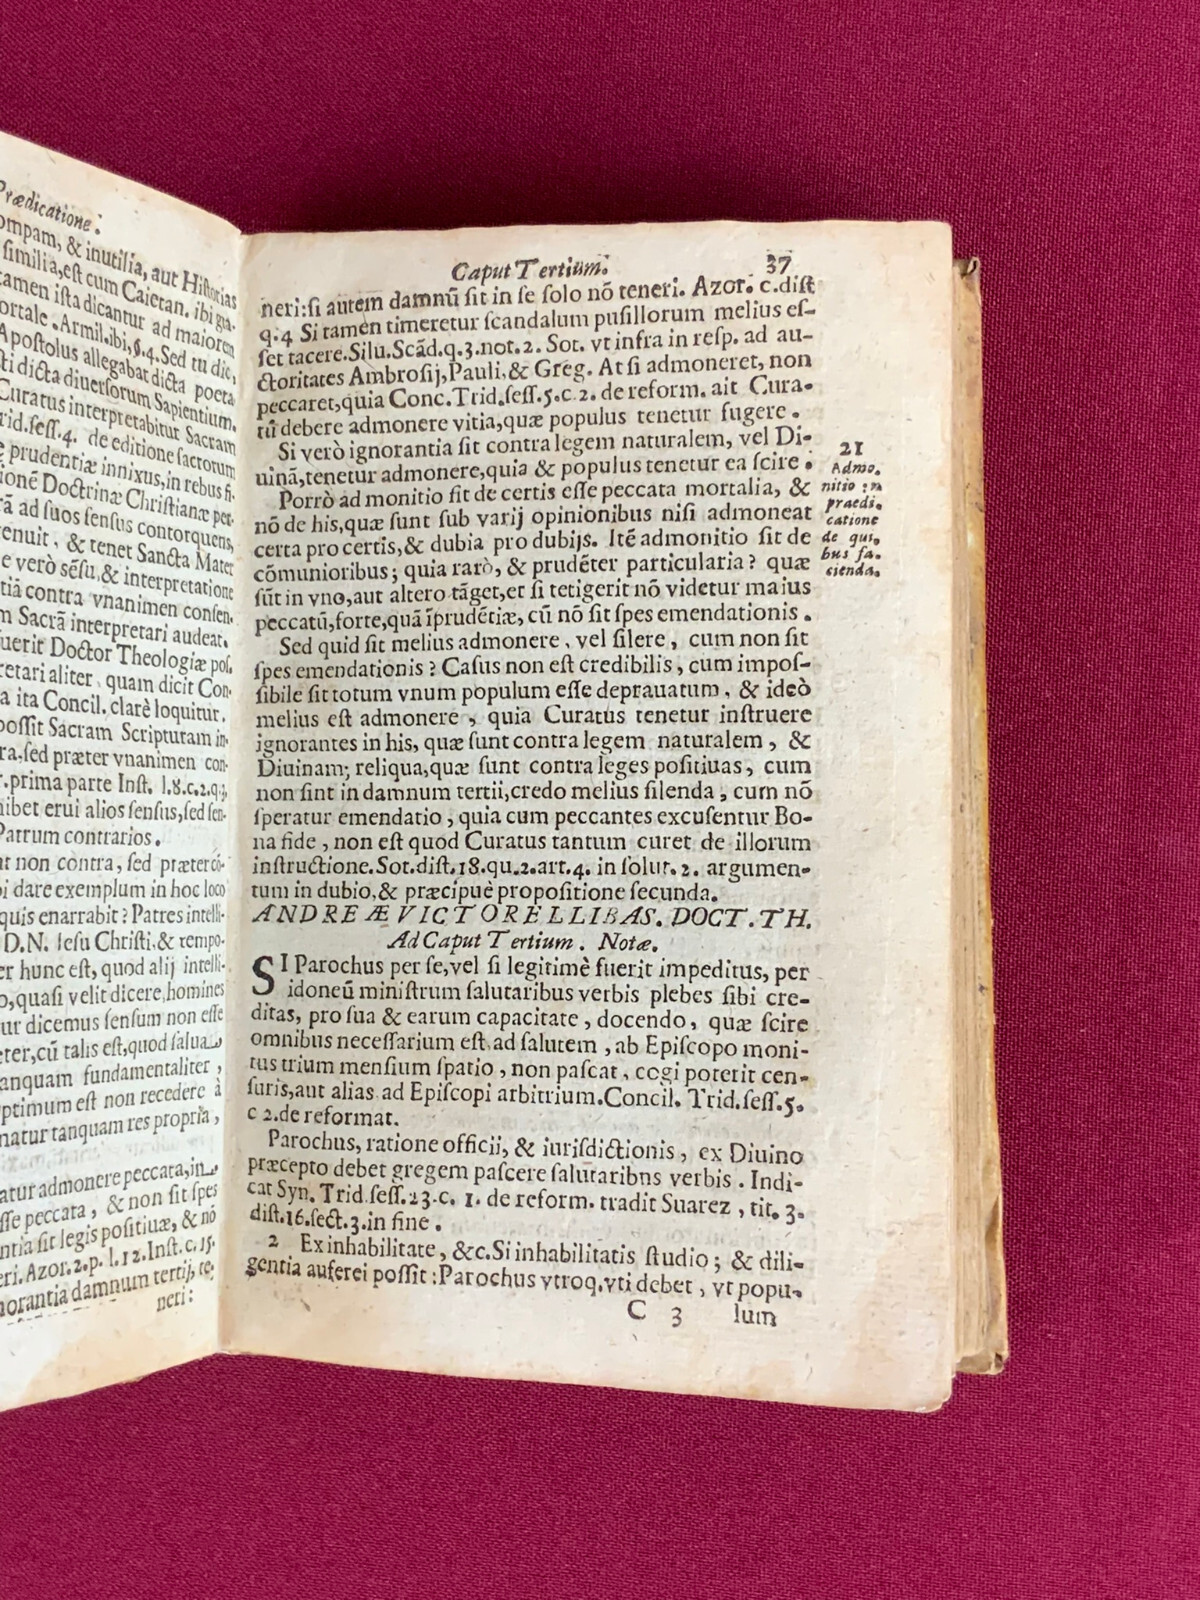 Prædicatione.
ompam, & inutilia, aut Historias
similia, est cum Caietan. ibi
tamen ista dicantur ad maiorem
ortale . Armil. ibi, §. 4. Sed tu dic,
Apostolus allegabat dicta poeta
ti dicta diuersorum Sapientium.
Curatus interpretabitur Sacram
rid. sess. 4. de editione sactorum
prudentiæ innixus, in rebus fi-
ionẽ Doctrinæ Christianæ per-
rã ad suos sensus contorquens,
enuit, & tenet Sancta Mater
e verò sẽsu, & interpretatione
tiã contra vnanimen consen-
m Sacrã interpretari audeat.
uerit Doctor Theologiæ pos-
retari aliter, quam dicit Con-
a ita Concil. clarè loquitur.
possit Sacram Scripturam in-
ra. sed præter vnanimen con-
r. prima parte Inst. l.8.c.2.q.3,
nibet erui alios sensus, sed sen-
Patrum contrarios.
nt non còntra, sed præter cō-
i dare exemplum in hoc loco
quis enarrabit? Patres intelli-
D.N. Iesu Christi, & tempo-
er hunc est, quod alij intelli-
o, quasi velit dicere, homines
ur dicemus sensum non esse
ter, cũ talis est, quod salua
anquam fundamentaliter,
ptimum est non recedere à
natur tanquam res propria,
atur admonere peccata, in
sse peccata, & non sit spes
ntia sit legis positiuæ, & nō
eri. Azor. 2. p. l. 12. Inst. c. 15.
norantiã damnum tertij, te-
neri:
Caput Tertium. 37
neri: si autem damnũ sit in se solo nō teneri. Azor. c. dist
q. 4 Si tamen timeretur scandalum pusillorum melius es-
set tacere. Silu. Scãd. q. 3. not. 2. Sot. vt infra in resp. ad au-
ctoritates Ambrosij, Pauli, & Greg. At si admoneret, non
peccaret, quia Conc. Trid. sess. 5. c. 2. de reform. ait Cura-
tũ debere admonere vitia, quæ populus tenetur fugere .
Si verò ignorantia sit contra legem naturalem, vel Di-
uinã, tenetur admonere, quia & populus tenetur ea scire .
Porrò ad monitio fit de certis esse peccata mortalia, &
nō de his, quæ sunt sub varij opinionibus nisi admoneat
certa pro certis, & dubia pro dubijs. Itẽ admonitio sit de
cōmunioribus; quia rarò, & prudẽter particularia? quæ
sũt in vno, aut altero tãget, et si tetigerit nō videtur maius
peccatũ, forte, quã ĩprudẽtiæ, cũ nō sit spes emendationis .
Sed quid sit melius admonere, vel silere, cum non sit
spes emendationis? Casus non est credibilis, cum impos-
sibile sit totum vnum populum esse deprauatum, & ideò
melius est admonere, quia Curatus tenetur instruere
ignorantes in his, quæ sunt contra legem naturalem, &
Diuinam; reliqua, quæ sunt contra leges positiuas, cum
non sint in damnum tertii, credo melius silenda, cum nō
speratur emendatio, quia cum peccantes excusentur Bo-
na fide, non est quod Curatus tantum curet de illorum
instructione. Sot. dist. 18. qu. 2. art. 4. in solur. 2. argumen-
tum in dubio, & præcipuè propositione secunda.
ANDREÆ VICTORELLI BAS. DOCT. TH.
Ad Caput Tertium . Notæ.
SI Parochus per se, vel si legitimè fuerit impeditus, per
idoneũ ministrum salutaribus verbis plebes sibi cre-
ditas, pro sua & earum capacitate, docendo, quæ scire
omnibus necessarium est ad salutem, ab Episcopo moni-
tus trium mensium spatio, non pascat, cogi poterit cen-
suris, aut alias ad Episcopi arbitrium. Concil. Trid. sess. 5.
c 2. de reformat.
Parochus, ratione officii, & iurisdictionis, ex Diuino
præcepto debet gregem pascere salutaribns verbis . Indi-
cat Syn. Trid. sess. 23. c. 1. de reform. tradit Suarez, tit. 3.
dist. 16. sect. 3. in fine .
2 Ex inhabilitate, &c. Si inhabilitatis studio; & dili-
gentia auferei possit: Parochus vtroq. vti debet, vt popu-
C 3 lum
21
Admo-
nitio in
praedi-
catione
de qui-
bus fa-
cienda.